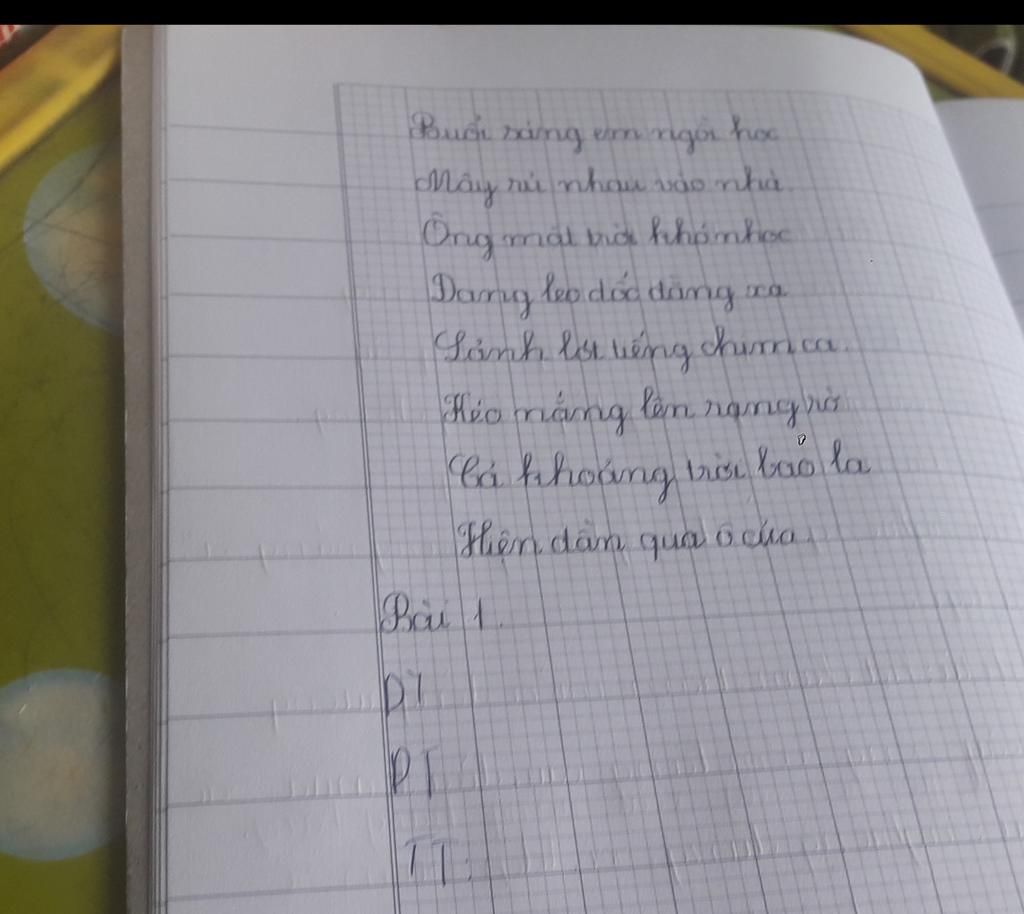 Buổi sáng em ngồi học
Mây rủ nhau vào nhà
Ông mặt trời khó nhọc
Đang leo dốc đằng xa
Lảnh lót tiếng chim ca
Kéo nắng lên rạng rỡ
Cả khoảng trời bao la
Hiện dần qua ô cửa.
Bài 1.
DT
ĐT
TT: